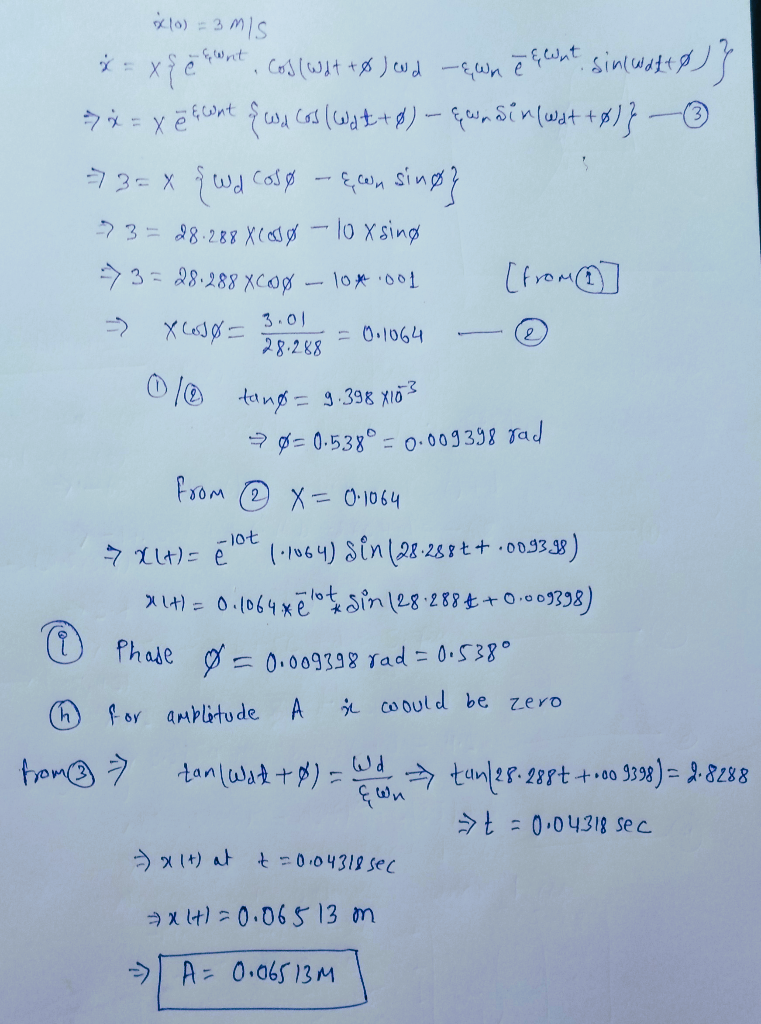 ẋ(0) = 3 M/S
ẋ = X{e^-ξωnt . Cos(ωdt+ø) ωd - ξωn e^-ξωnt . Sin(ωdt+ø)}
⇒ ẋ = X e^-ξωnt {ωd Cos(ωdt+ø) - ξωn Sin(ωdt+ø)} — ③
⇒ 3 = X {ωd Cosø - ξωn sinø}
⇒ 3 = 28.288 X Cosø - 10 X sinø
⇒ 3 = 28.288 X Cosø - 10* .001 [from ①]
⇒ X Cosø = 3.01/28.288 = 0.1064 — ②
①/② tanø = 9.398 X10^-3
⇒ ø = 0.538° = 0.009398 rad
From ② X = 0.1064
⇒ x(t) = e^-10t (.1064) Sin(28.288t + .009398)
x(t) = 0.1064 * e^-10t * Sin(28.288t + 0.009398)
ⓘ Phase ø = 0.009398 rad = 0.538°
ⓗ for amplitude A ẋ would be zero
from ③ ⇒ tan(ωdt + ø) = ωd/ξωn ⇒ tan(28.288t + .009398) = 2.8288
⇒ t = 0.04318 sec
⇒ x(t) at t = 0.04318 sec
⇒ x(t) = 0.06513 m
⇒ A = 0.06513M